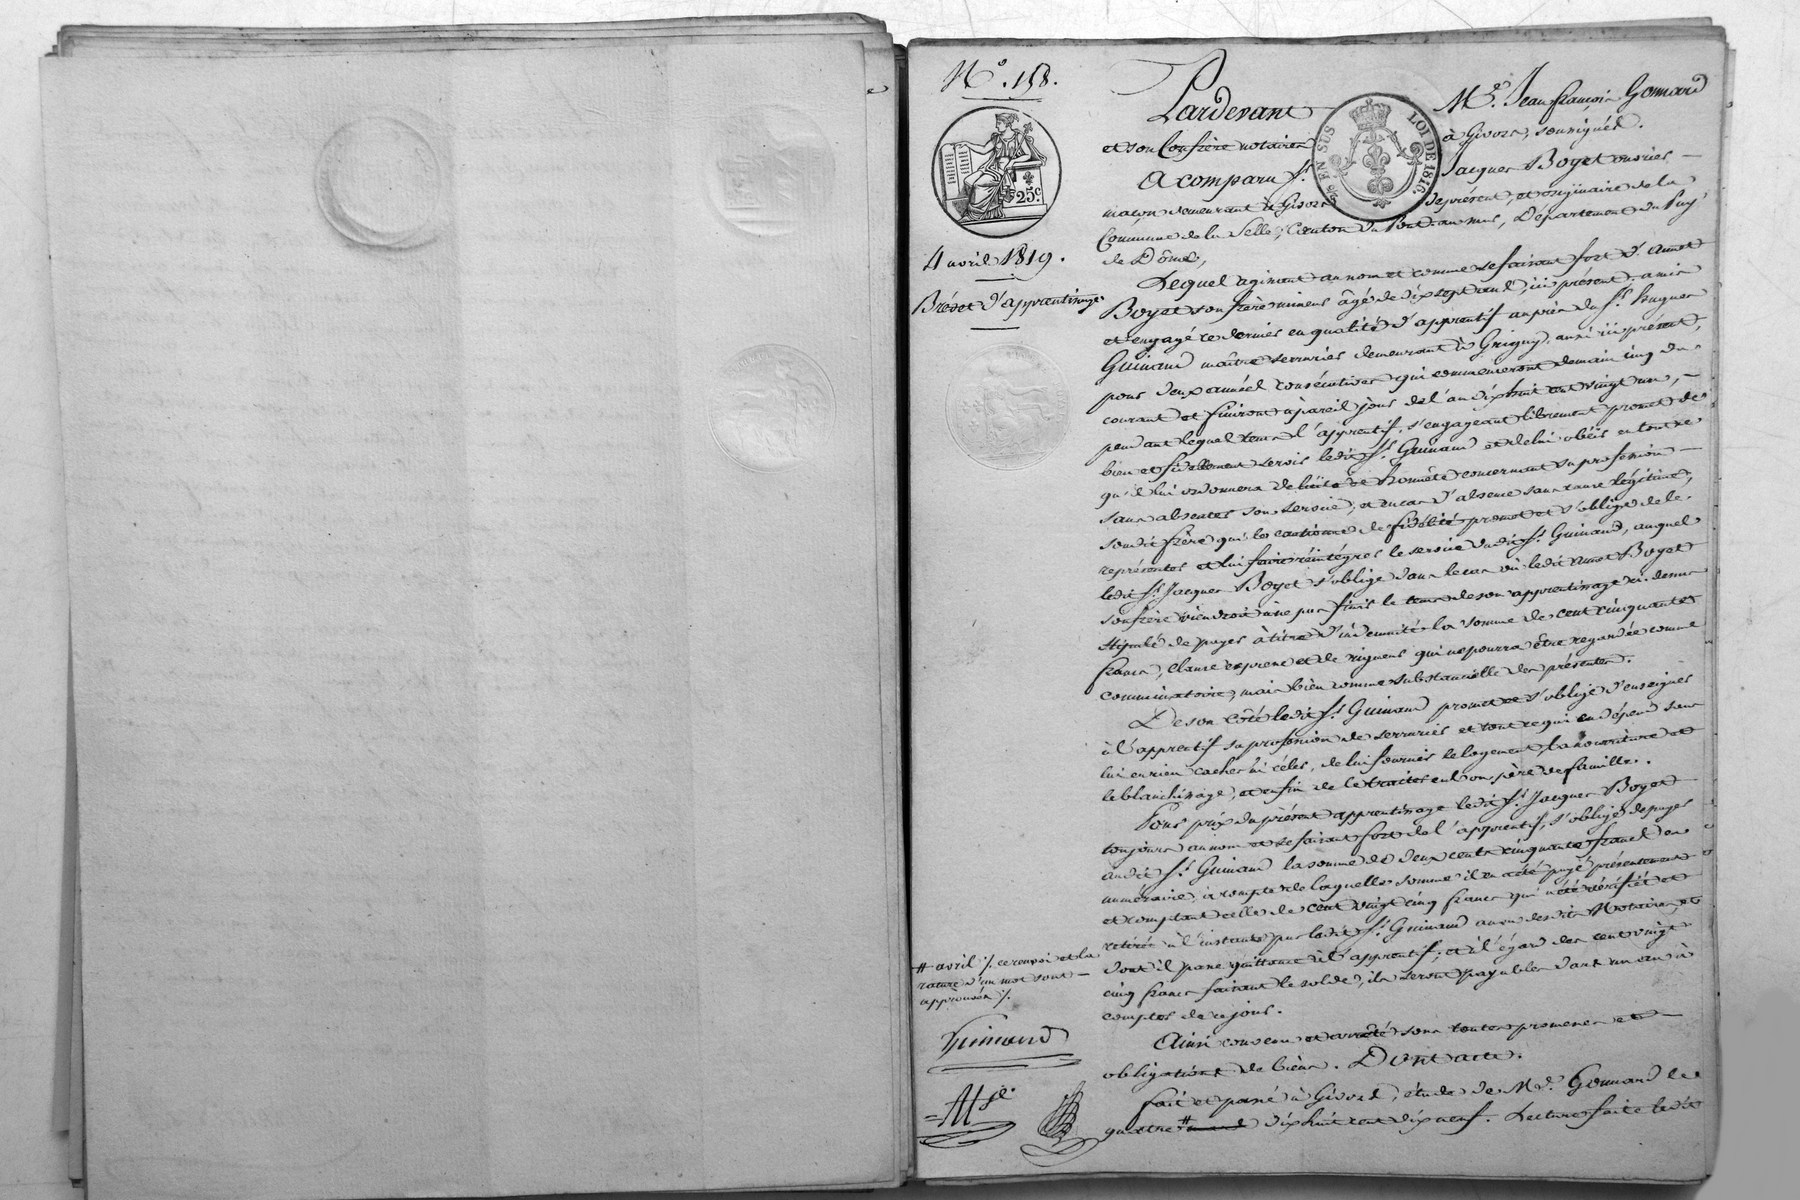 N.º 158.
25.c
4 avril 1819.
Brévet d'apprentissage
EN SUS
LOI DE 1816.
Pardevant Me. Jean françois Gonnard
et son Confrère notaires à Givors, soussignés.
A comparu Sr. Jacques Boyet ouvrier
maçon demeurant à Givors de présent, et originaire de la
Commune de la Celle, Canton du Pontaumur, Département du Puy
de Dôme,
Lequel agissant au nom et comme se faisant fort d'Amet
Boyet son frère mineur âgé de dix sept ans, ici présent, a mis
et engagé ce dernier en qualité d'apprentif auprès du Sr. hugues
Guimard maître serrurier demeurant à Grigny, aussi ici présent,
pour deux années consécutives qui commenceront demain cinq du
courant et finiront à pareil jour de l'an dix huit cent vingt un,
pendant lequel tems l'apprentif, s'engageant librement promet de
bien et fidellement servir ledit Sr. Guimard et de lui obéir en tout ce
qu'il lui ordonnera de licite et honnête concernant sa profession
sans absenter son service, et en cas d'absence sans cause légitime,
sondit frère qui le cautionne de fidélité promet et s'oblige de le
représenter et lui faire réintégrer le service dudit Sr. Guimard, auquel
ledit Sr. Jacques Boyet s'oblige dans le cas où ledit Amet Boyet
son frère viendroit à ne pas finir le tems de son apprentissage ci-dessus
stipulé de payer à titre d'indemnité la somme de cent cinquante
francs, clause expresse et de rigueur qui ne pourra être regardée comme
comminatoire, mais bien comme substancielle des présentes.
De son côté ledit Sr. Guimard promet et s'oblige d'enseigner
à l'apprentif sa profession de serrurier et tout ce qui en dépend sans
lui en rien cacher ni céler, de lui fournir le logement, la nourriture et
le blanchissage, et enfin de le traiter en bon père de famille.
Pour prix du présent apprentissage ledit Sr. Jacques Boyet
toujours au nom et se faisant fort de l'apprentif, s'oblige de payer
audit Sr. Guimard la somme de deux cents cinquante francs en
numéraire, à compte de laquelle somme il en a été payé présentement
et comptant celle de cent vingt cinq francs qui a été vérifiée et
retirée à l'instant par ledit Sr. Guimard au vu desdits Notaires, et
dont il passe quittance à l'apprentif, et à l'égard des cent vingt
cinq francs faisant le solde, ils seront payables dans un an à
compter de ce jour.
Ainsi convenu et arrêté sous toutes promesses et
obligations de biens. Dont acte.
fait et passé à Givors, étude de Me. Gonnard le
quatre # dix huit cent dix neuf. Lecture faite ledit
# avril /. ce renvoi et la
rature d'un mot sont
approuvés /.
Guimard